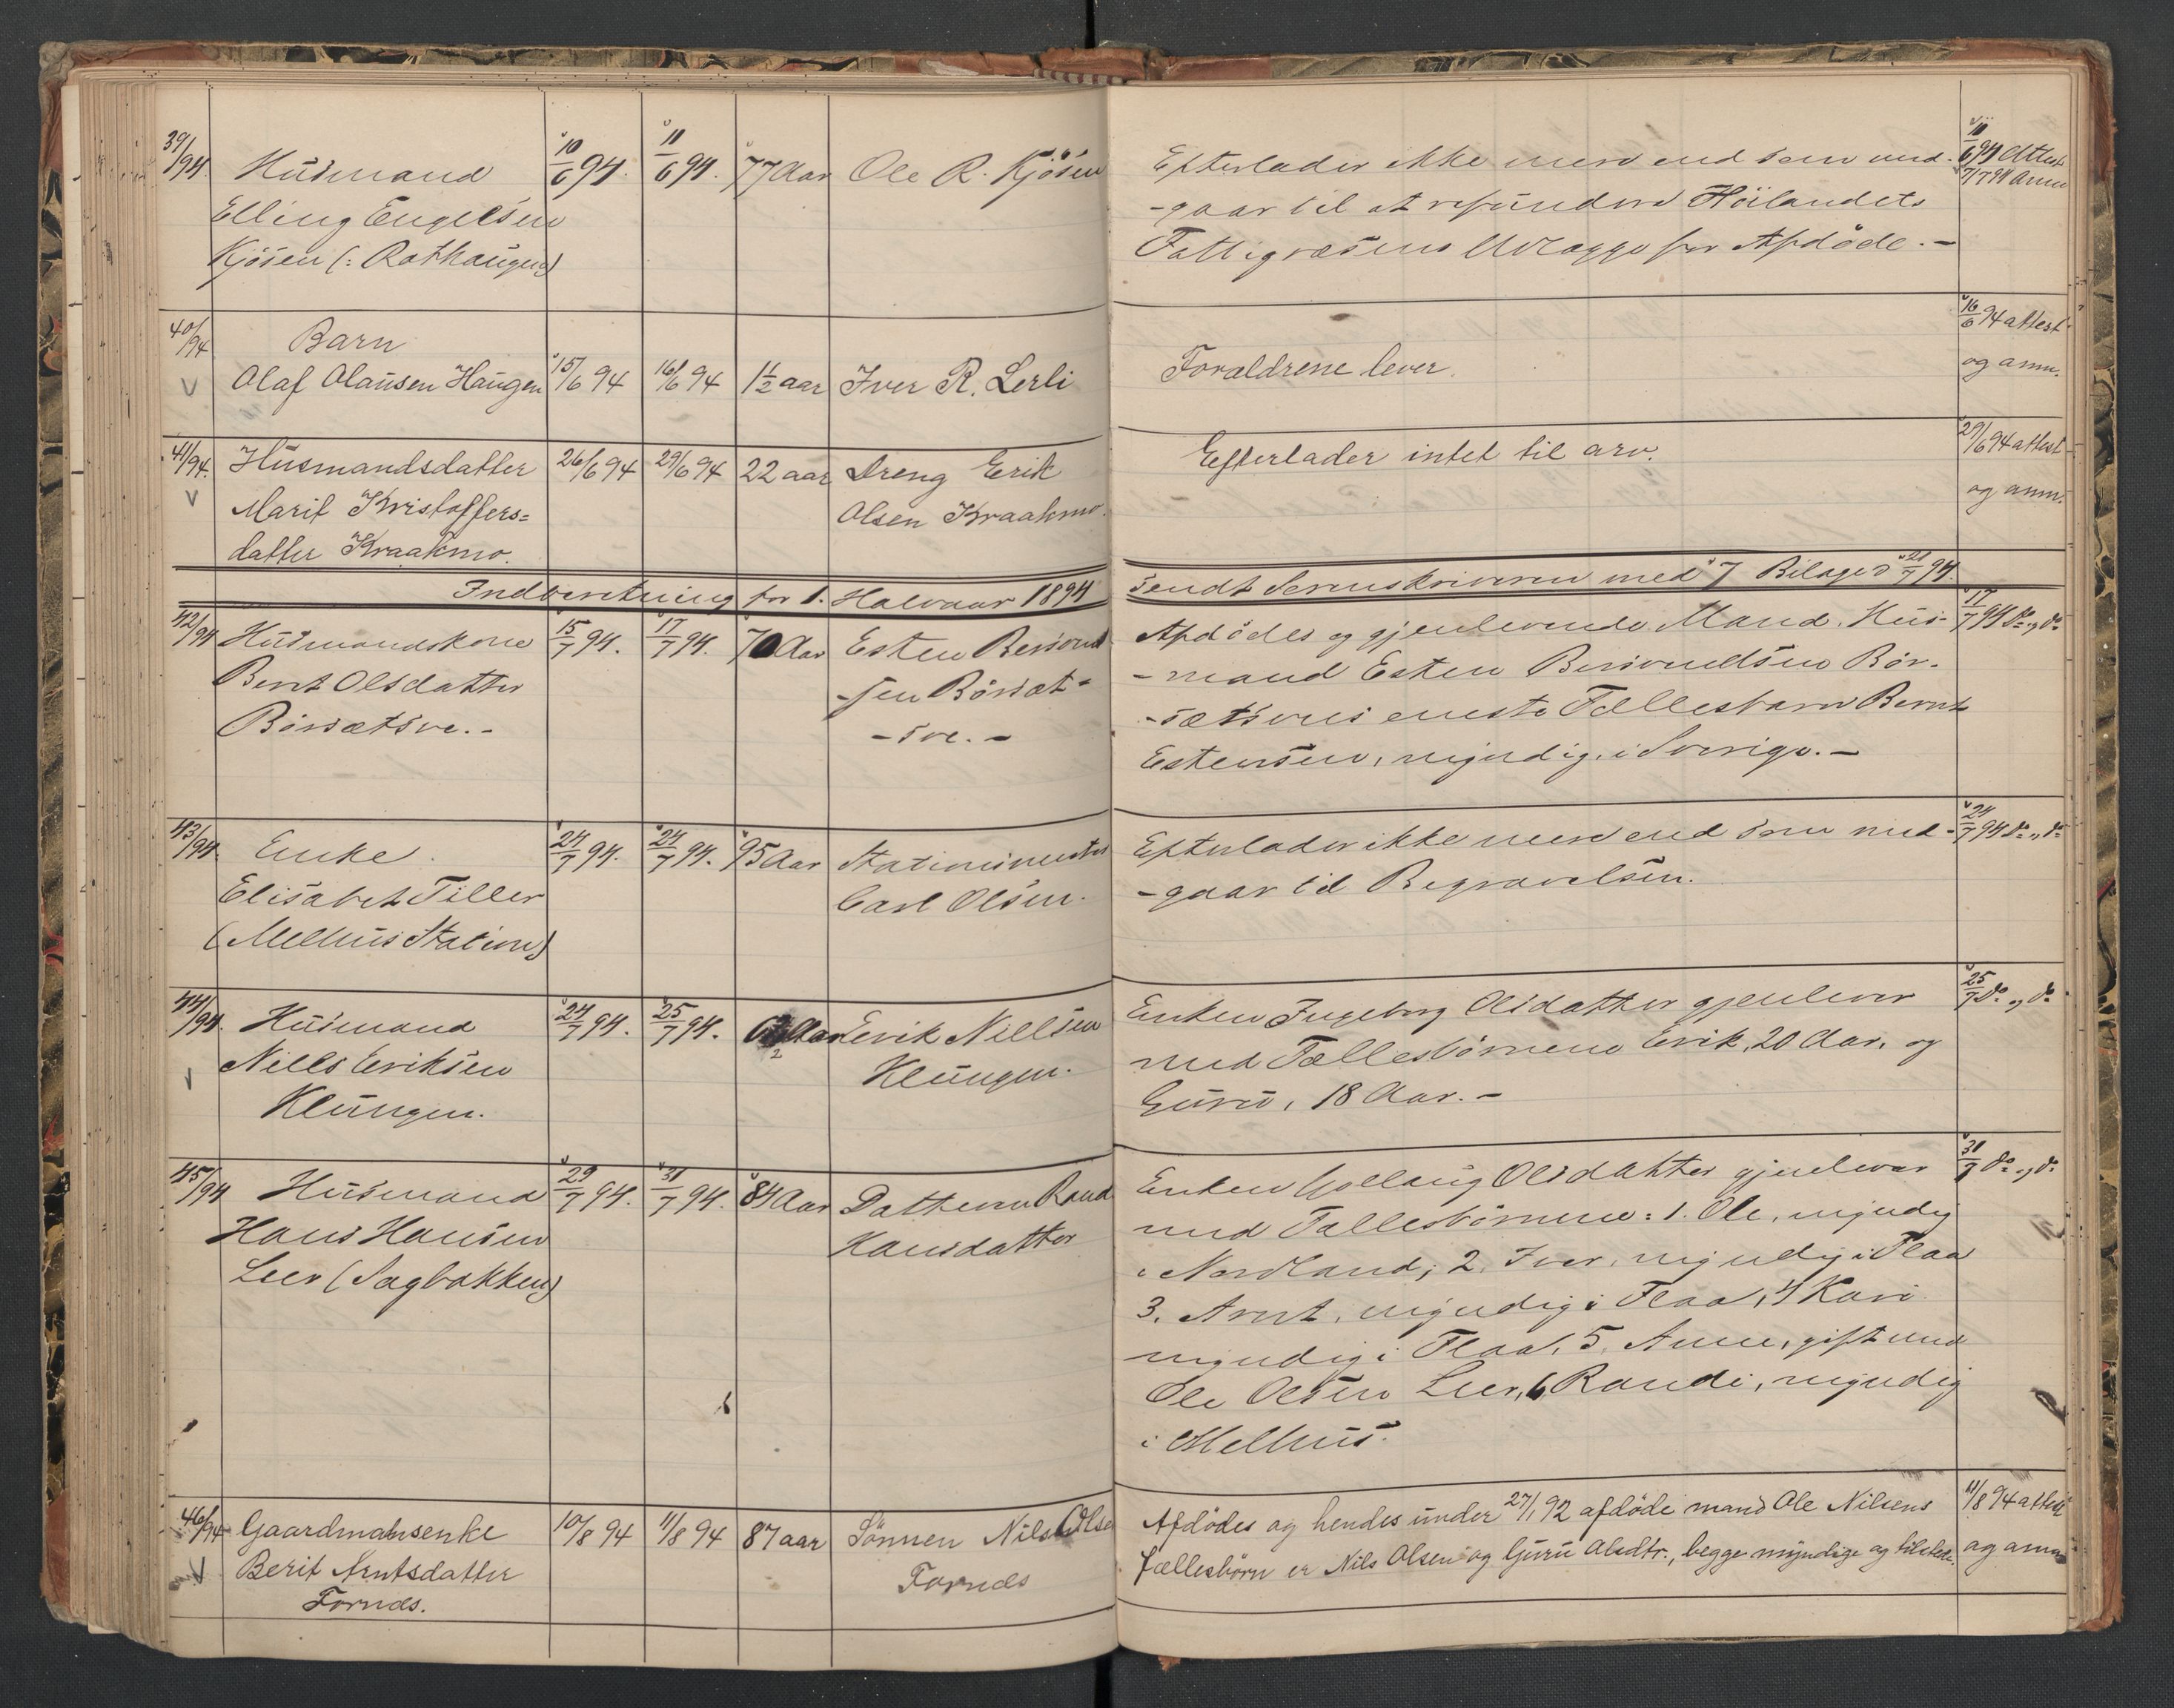 39/94. Husmand 10/6 94. 11/6 94. 77 Aar Ole R. Kjösen Efterlader ikke mere end som med- 11/6 94 Attest
Elling Engelsen -gaar til at refundere Höilandets 7/7 94 Anm
Kjösen (: Rothaugen) Fattigvæsens Udlægge for Afdöde. -
40/94 Barn 16/6 94 attest
V Olaf Olausen Haugen 15/6 94 16/6 94 1½ aar Iver R. Lerli Forældrene lever. og anm.
41/94. Husmandsdatter 26/6 94 29/6 94 22 aar Dreng Erik Efterlader intet til arv. 29/6 94 attest
V Marit Kristoffers= Olsen Kraakmo. og anm.
datter Kraakmo.
Indberetning for 1. Halvaar 1894 sendt Sorenskriveren med 7 Bilager 21/7 94.
42/94 Husmandskone 15/7 94. 17/7 94. 70 Aar Esten Bersvend- Afdödes og gjenlevende Mand, Hus- 17/7 94 do. " do.
Berit Olsdatter -sen Börsæt- -mand Esten Bersvendsen Bör-
Börsætsve. - -sve. - -sætsves eneste Fællesbarn Bernt
Estensen, myndig, i Sverige. -
43/94. Enke. 24/7 94. 24/7 94. 95 Aar Stationsmester Efterlader ikke mere end som med- 24/7 94 do. " do.
Elisabet Tiller Carl Olsen. -gaar til Begravelsen.
(Melhus Station)
44/94. Husmand 24/7 94. 25/7 94. Aar Erik Nillsen Enken Ingeborg Olsdatter gjenlever 25/7 do. " do.
V Nills Eriksen Klungen. med Fællesbörnene Erik, 20 Aar, og
Klungen. Guru, 18 Aar. -
45/94 Husmand 29/7 94. 31/7 94. 84 Aar Datteren Rand Enken Gollaug Olsdatter gjenlever 31/7 do. " do.
Hans Hansen Hansdatter med Fællesbörnene: 1. Ole, myndig
Leer (Sagbakken) i Nordland; 2. Iver, myndig i Flaa
3. Arnt, myndig i Flaa, 4 Kari
myndig i Flaa, 5. Anne, gift med
Ole Olsen Leer, 6, Randi, myndig
i Melhus.
46/94 Gaardmandsenke 10/8 94 11/8 94 87 aar Sönnen Nils Olse Afdödes og hendes under 27/1 92 afdöde mand Ole Nilsens 11/8 94 attest
V Berit Arntsdatter Fornes fællesbörn er Nils Olsen og Guru Olsdtr., begge myndige og tilstede. og anm
Fornes.